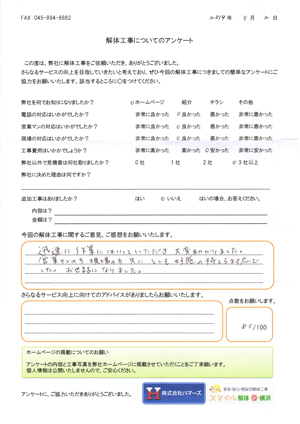 FAX 045-894-8882
解体工事についてのアンケート
この度は、弊社に解体工事をご依頼いただき、ありがとうございました。
さらなるサービスの向上を目指していきたいと考えており、ぜひ今回の解体工事につきましての簡単なアンケートにご
協力をお願いたします。該当するところに○をつけてください。
弊社を何でお知りになりましたか？ ○ホームページ 紹介 チラシ その他
電話の対応はいかがでしたか？ 非常に良かった ○良かった 悪かった 非常に悪かった
営業マンの対応はいかがでしたか？ 非常に良かった ○良かった 悪かった 非常に悪かった
現場の対応はいかがでしたか？ 非常に良かった ○良かった 悪かった 非常に悪かった
工事費用はいかがでしょうか？ 非常に高かった 高かった ○安かった 非常に安かった
弊社以外で見積書は何社取りましたか？ 0 社 1 社 2 社 ○3 社以上
弊社に決めた理由は何ですか？
追加工事はありましたか？ はい ○いいえ はいの場合、お答えください。
内容は？
金額は？
今回の工事に関するご意見、ご感想をお願いいたします。
迅速に作業にはいっていただき大変助かりました。
営業マンの方、現場の方、共に とても好感の持てる対応で
した。お世話になりました。
さらなるサービス向上に向けてのアドバイスがありましたらお願いいたします。
点数をお願します。
85/100
ホームページの掲載についてのお願い
アンケートの内容と工事写真を弊社ホームページに掲載させていただくことをご了承願います。
個人情報は公開いたしませんので、ご安心ください。
アンケートに、ご協力いただきありがとうございました。
H 株式会社ハマーズ
安全・安心・格安の解体工事
スマイル解体 横浜